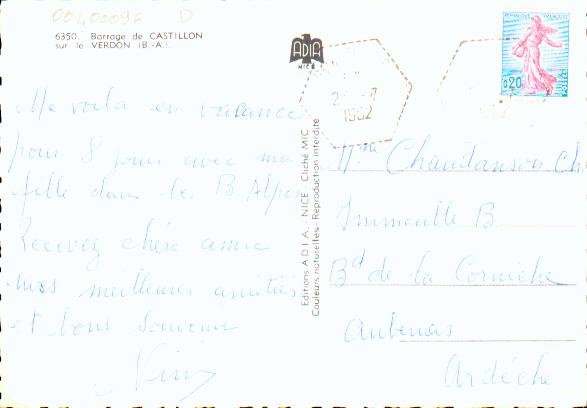 00400096 D
6350. Barrage de CASTILLON
sur le VERDON (B.-A.).
ADIA
NICE
REPUBLIQUE FRANÇAISE
0,20
POSTES
1962
Me voila en vacance
pour 8 jours avec ma
fille dans les B. Alpes
Recevez chère amie
mes meilleures amitiés
et bons souvenir
Editions A.D.I.A. - NICE Cliché MIC
Couleurs naturelles - Reproduction interdite
Mme Chandanson Ch
Immeuble B
Bd de la Corniche
Aubenas
Ardèche